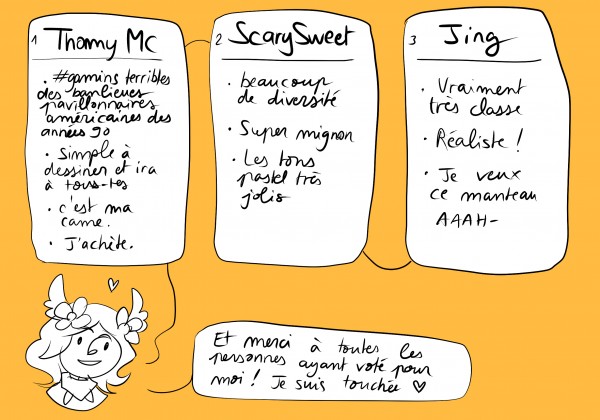 1 Thomy MC
• #gamins terribles
des banlieues
pavillonnaires
américaines des
années 90
• Simple à
dessiner et ira
à tous-tes
• c'est ma
came.
• J'achète.
2 ScarySweet
• beaucoup
de diversité
• Super mignon
• Les tons
pastel très
jolis
3 Jing
• Vraiment
très classe
• Réaliste !
• Je veux
ce manteau
AAAH-
Et merci à toutes les
personnes ayant voté pour
moi ! Je suis touchée ♡